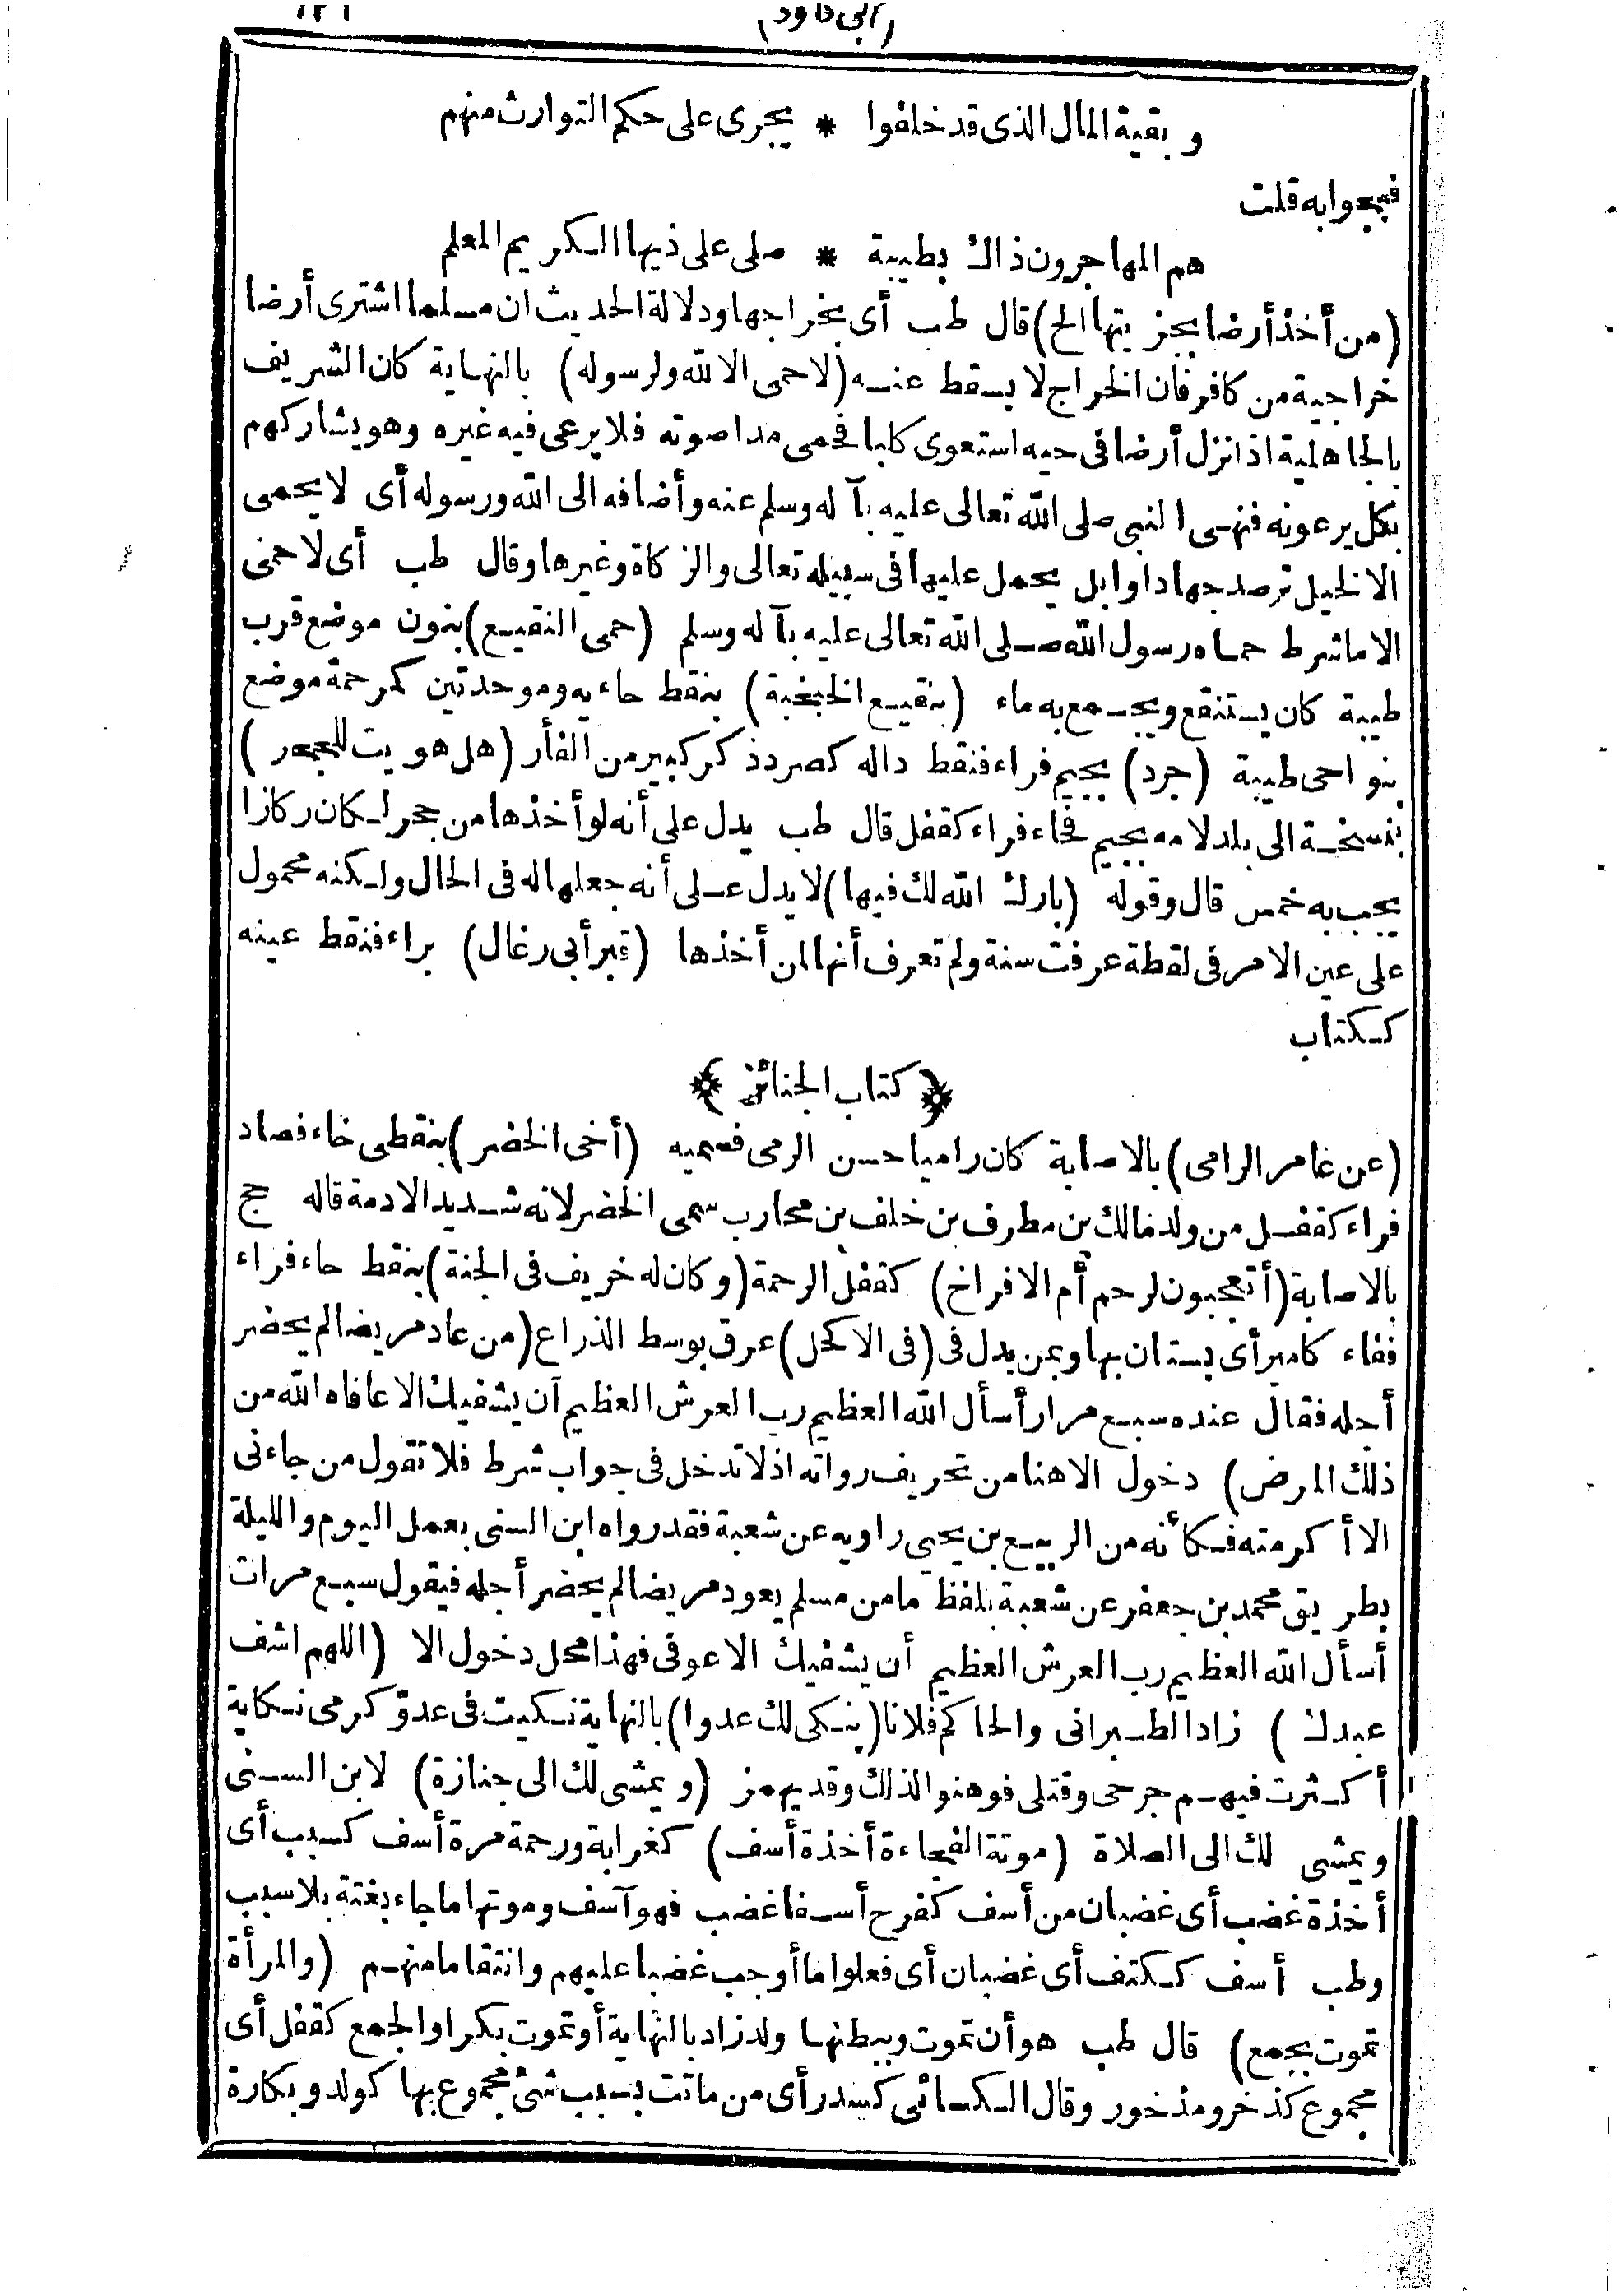 (أبى داود)
وبقية المال الذى قد خلفوا * يجرى على حكم التوارث منهم
فبجوابه قلت
هم المهاجرون ذاك بطيبة * صلى على ذيها الكريم المعلم
(من أخذ أرضا بجزيتها الخ) قال طب أى بخراجها ودلالة الحديث ان مسلما اشترى أرضا
خراجية من كافر فان الخراج لا يسقط عنه (لا حمى الا لله ولرسوله) بالنهاية كان الشريف
بالجاهلية اذا نزل أرضا فى حيه استعوى كلبا فحمى مدا صوته فلا يرعى فيه غيره وهو يشاركهم
بكل يرعونه فنهى النبى صلى الله تعالى عليه بآله وسلم عنه وأضافه الى الله ورسوله أى لا يحمى
الا لخيل ترصد جهادا وابل يحمل عليها فى سبيله تعالى والزكاة وغيرها وقال طب أى لا حمى
الا ما شرط حماه رسول الله صلى الله تعالى عليه بآله وسلم (حمى النقيع) بنون موضع قرب
طيبة كان يستنقع ويجمع به ماء (بنقيع الخبخبة) بنقط خاءيه وموحدتين كمرحمة موضع
بنواحى طيبة (جرد) بجيم فراء فنقط داله كصرد ذكر كبير من الفأر (هل هويت للجحر)
بنسخة الى بلد لامه بجيم فحاء فراء كقفل قال طب يدل على أنه لو أخذها من جحر لكان ركازا
يجب به خمس قال وقوله (بارك الله لك فيها) لا يدل على أنه جعلها له فى الحال ولكنه محمول
على عين الامر فى لقطة عرفت سنة ولم تعرف أنها لمن أخذها (قبر أبى رغال) براء فنقط عينه
ككتاب
﴿كتاب الجنائز﴾
(عن عامر الرامى) بالاصابة كان راميا حسن الرمى فسميه (أخى الخضر) بنقطى خاء فصاد
فراء كقفل من ولد مالك بن مطرف بن خلف بن محارب سمى الخضر لانه شديد الادمة قاله حج
بالاصابة (أتعجبون لرحم أم الافراخ) كقفل الرحمة (وكان له خريف فى الجنة) بنقط خاء فراء
ففاء كامير أى بستان بها وبمن يدل فى (فى الاكحل) عرق بوسط الذراع (من عاد مريضا لم يحضر
أجله فقال عنده سبع مرار أسأل الله العظيم رب العرش العظيم أن يشفيك الا عافاه الله من
ذلك المرض) دخول الا هنا من تحريف رواته اذ لا تدخل فى جواب شرط فلا تقول من جاءنى
الا أكرمته فكأنه من الربيع بن يحيى راويه عن شعبة فقد رواه ابن السنى بعمل اليوم والليلة
بطريق محمد بن جعفر عن شعبة بلفظ ما من مسلم يعود مريضا لم يحضر أجله فيقول سبع مرات
أسأل الله العظيم رب العرش العظيم أن يشفيك الا عوفى فهذا محل دخول الا (اللهم اشف
عبدك) زاد الطبرانى والحاكم فلانا (ينكى لك عدوا) بالنهاية نكيت فى عدوّ كرمى نكاية
أكثرت فيهم جرحى وقتلى فوهنوا لذلك وقد يهمز (ويمشى لك الى جنازة) لابن السنى
ويمشى لك الى الصلاة (موتة الفجاءة أخذة أسف) كغرابة ورحمة مرة أسف كسبب أى
أخذة غضب أى غضبان من أسف كفرح أسفا غضب فهو آسف وموتها ما جاء بغتة بلا سبب
وطب أسف ككتف أى غضبان أى فعلوا ما أوجب غضبا عليهم وانتقاما منهم (والمرأة
تموت بجمع) قال طب هو أن تموت وببطنها ولد زاد بالنهاية أو تموت بكرا والجمع كقفل أى
مجموع كذخر ومذخور وقال الكسائى كسدر أى من ماتت بسبب شئ مجموع بها كولد وبكارة